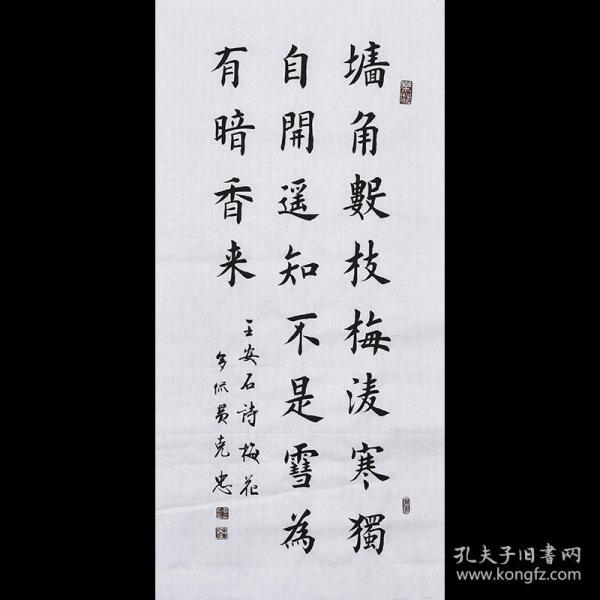 墻角數枝梅淩寒獨
自開遥知不是雪為
有暗香来
王安石詩梅花
黄克忠
孔夫子旧書网
www.kongfz.com